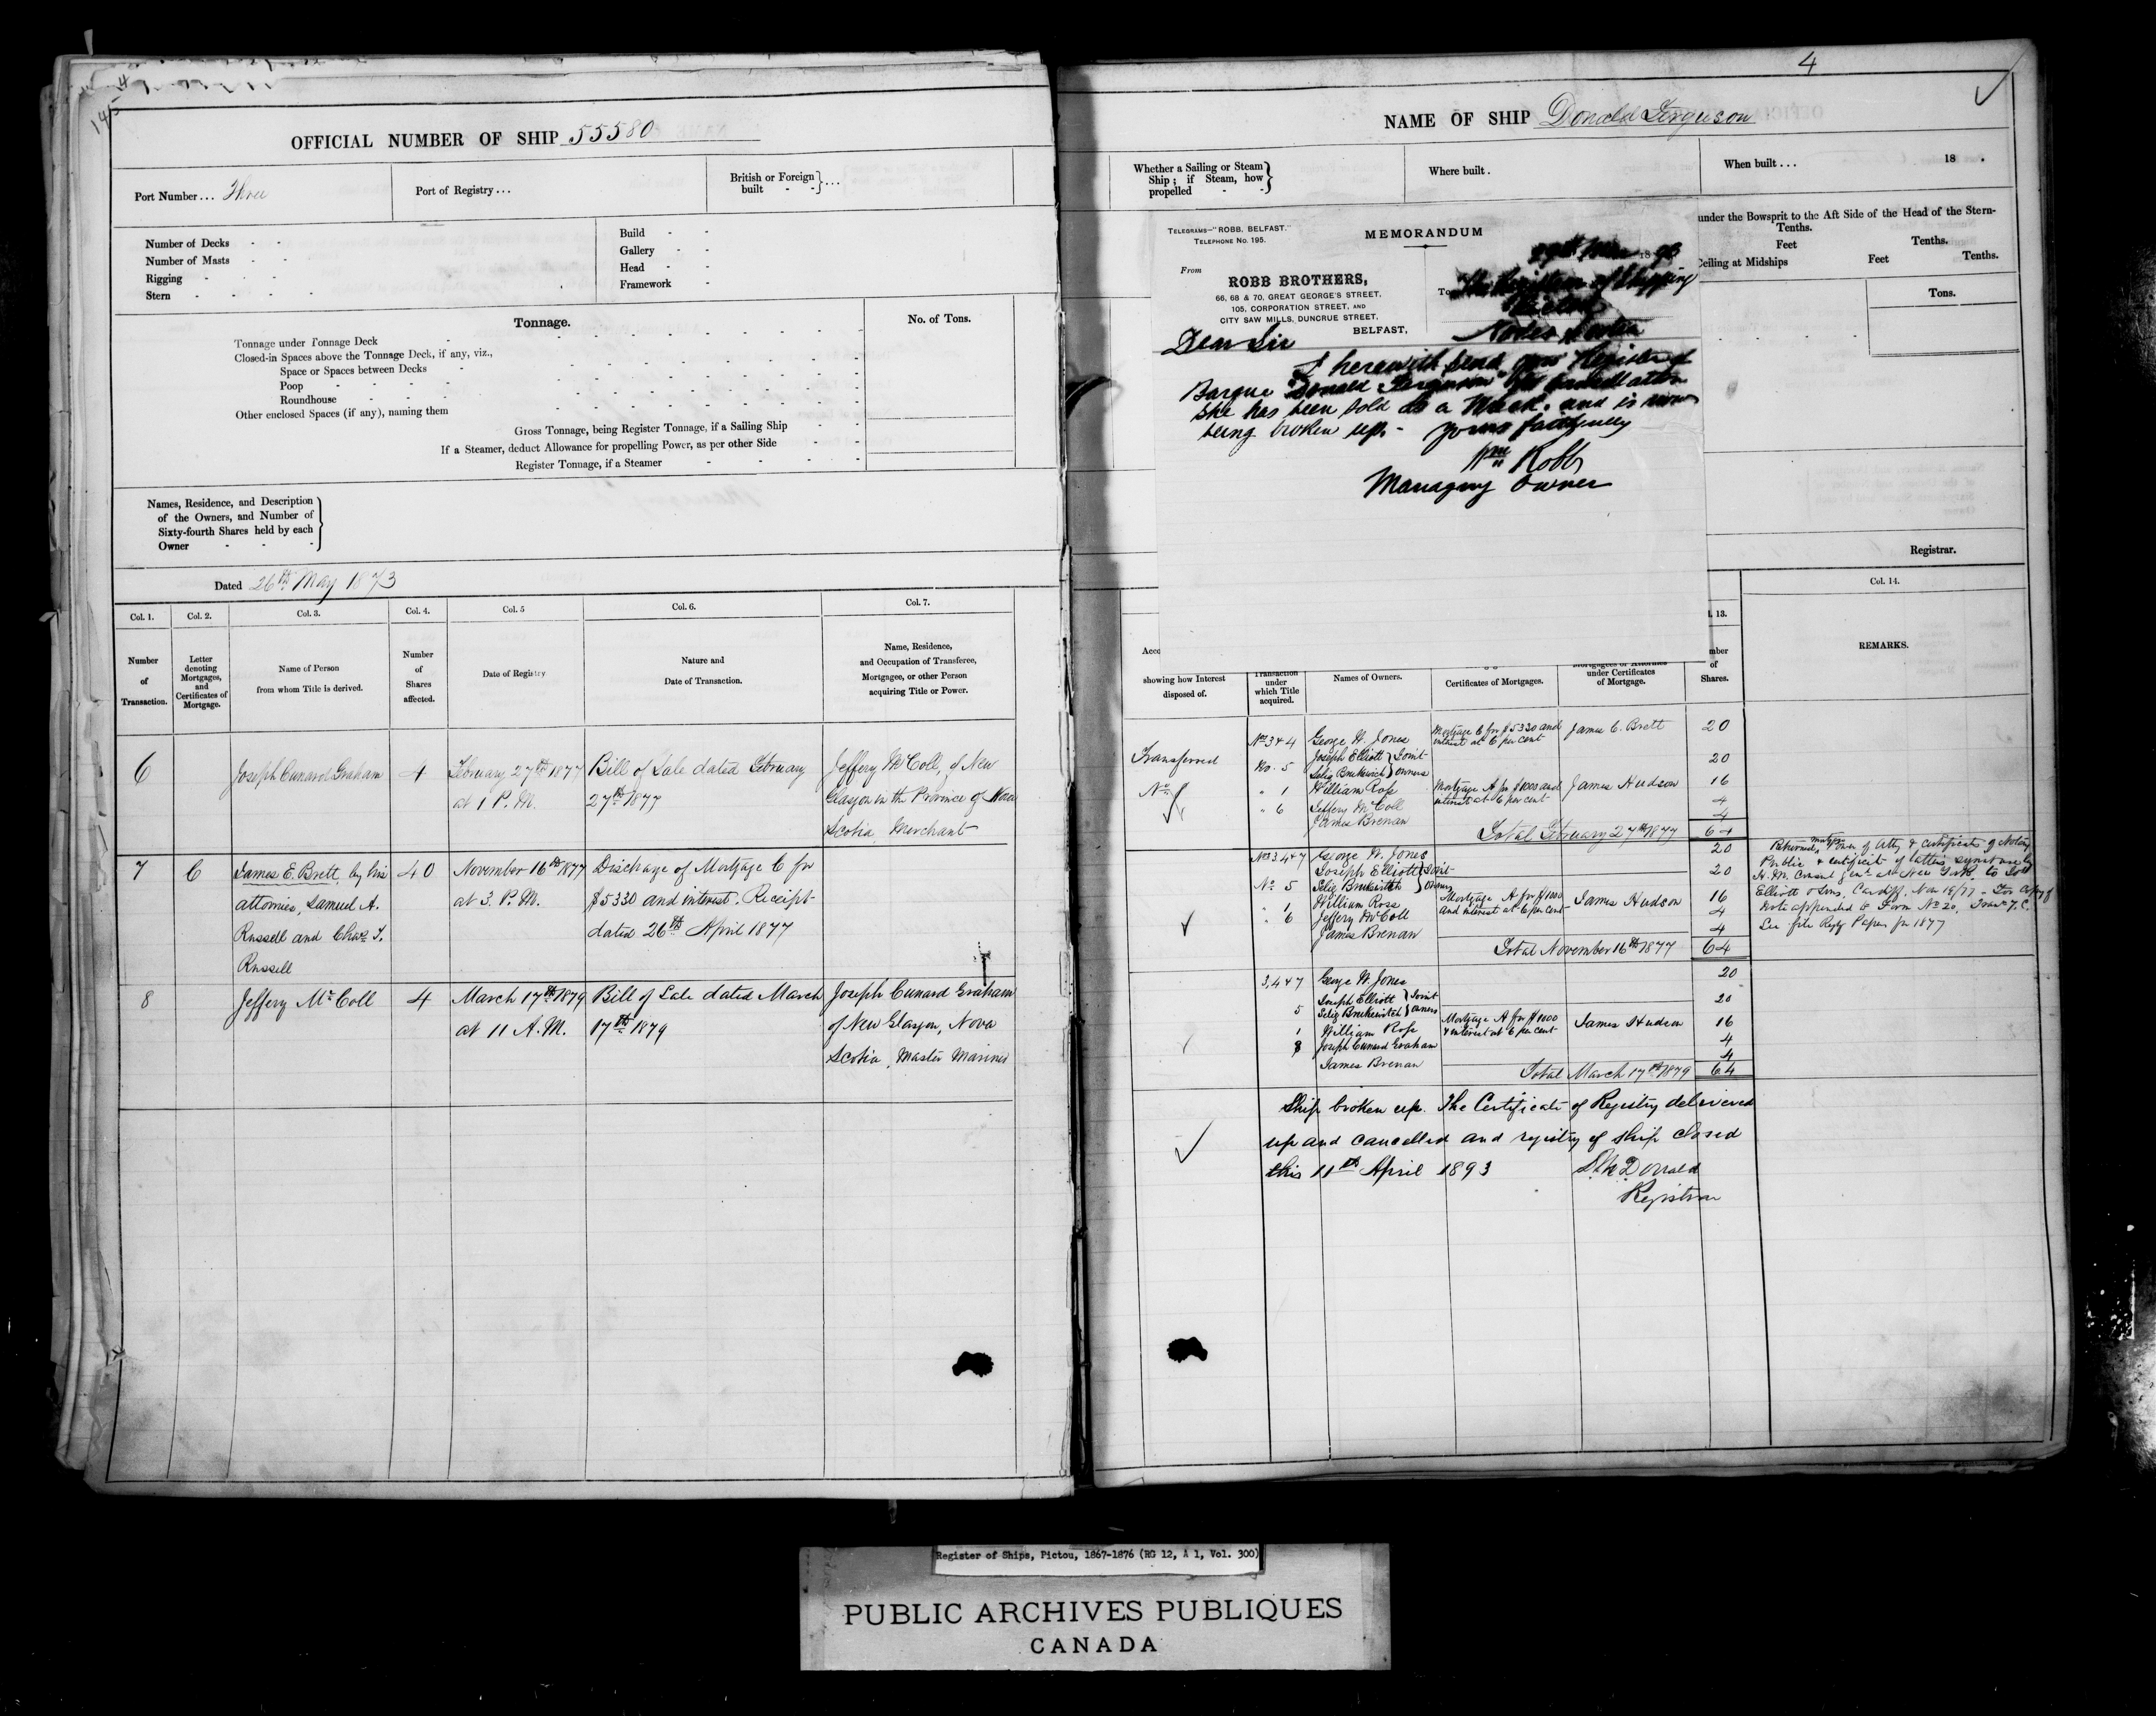 4
145
OFFICIAL NUMBER OF SHIP 55580
Port Number... Three
Port of Registry...
British or Foreign built - - } ...
Number of Decks - -
Number of Masts - -
Rigging - - -
Stern - - - -
Build - -
Gallery - -
Head - -
Framework -
Tonnage.
No. of Tons.
Tonnage under Tonnage Deck
Closed-in Spaces above the Tonnage Deck, if any, viz.,
Space or Spaces between Decks
Poop
Roundhouse
Other enclosed Spaces (if any), naming them
Gross Tonnage, being Register Tonnage, if a Sailing Ship
If a Steamer, deduct Allowance for propelling Power, as per other Side
Register Tonnage, if a Steamer
Names, Residence, and Description
of the Owners, and Number of
Sixty-fourth Shares held by each
Owner
Dated 26th May 1873
Col. 1. Col. 2. Col. 3. Col. 4. Col. 5 Col. 6. Col. 7.
Number of Transaction.
Letter denoting Mortgages, and Certificates of Mortgage.
Name of Person from whom Title is derived.
Number of Shares affected.
Date of Registry
Nature and Date of Transaction.
Name, Residence, and Occupation of Transferee, Mortgagee, or other Person acquiring Title or Power.
6 Joseph Cunard Graham 4 February 27th 1877 Bill of Sale dated February Jeffery McColl, of New
at 1 P.M. 27th 1877 Glasgow in the Province of Nova
Scotia, Merchant
7 C James E. Brett, by his 40 November 16th 1877 Discharge of Mortgage C for
attornies, Samuel A. at 3. P.M. $5330 and interest. Receipt
Russell and Chas. T. dated 26th April 1877
Russell
8 Jeffery McColl 4 March 17th 1879 Bill of Sale dated March Joseph Cunard Graham
at 11 A.M. 17th 1879 of New Glasgow, Nova
Scotia, Master Mariner
4
NAME OF SHIP Donald Ferguson
Whether a Sailing or Steam Ship; if Steam, how propelled - - }
Where built.
When built... 18 .
under the Bowsprit to the Aft Side of the Head of the Stern-
Tenths.
Feet Tenths.
Ceiling at Midships Feet Tenths.
Tons.
Registrar.
TELEGRAMS-"ROBB, BELFAST."
TELEPHONE No. 195.
MEMORANDUM
From
ROBB BROTHERS,
66, 68 & 70, GREAT GEORGE'S STREET,
105, CORPORATION STREET, AND
CITY SAW MILLS, DUNCRUE STREET,
BELFAST,
18 93
To The Registrar of Shipping
Pictou
Nova Scotia
Dear Sir
I herewith send you Register of
Barque "Donald Ferguson" for cancellation
She has been sold as a Wreck. and is now
being broken up. - yours faithfully
Wm Robb
Managing Owner
Acco
showing how Interest disposed of.
Transaction under which Title acquired.
Names of Owners.
Certificates of Mortgages.
Mortgagees or Attornies under Certificates of Mortgage.
l. 13.
mber of Shares.
Col. 14.
REMARKS.
Transferred Nos 3 & 4 George W. Jones Mortgage C for $5330 and interest at 6 per cent James E. Brett 20
No. 5 Joseph Elliott } Joint owners 20
" 1 William Ross Mortgage A for $1000 and interest at 6 per cent James Hudson 16
" 6 Jeffery McColl 4
James Brenan 4
Total February 27th 1877 64
Nos 3, 4 & 7 George W. Jones 20
No 5 Joseph Elliott } Joint owners 20
" 1 William Ross Mortgage A for $1000 and interest at 6 per cent James Hudson 16
" 6 Jeffery McColl 4
James Brenan 4
Total November 16th 1877 64
Returned mortgage, Power of Atty & certificate of Notary
Public & certificate of latter's signature by
H.M. Consul Genl at New York to
Elliott & Sons, Cardiff, Nov 19/77 - For Copy of
Note appended to Form No 20,
See file Regy Papers for 1877
3, 4 & 7 George W. Jones 20
5 Joseph Elliott } Joint owners 20
1 William Ross Mortgage A for $1000 & interest at 6 per cent James Hudson 16
8 Joseph Cunard Graham 4
James Brenan 4
Total March 17th 1879 64
Ship broken up. The Certificate of Registry delivered
up and cancelled and registry of ship closed
this 11th April 1893 D. McDonald
Registrar
Register of Ships, Pictou, 1867-1876 (RG 12, A 1, Vol. 300)
PUBLIC ARCHIVES PUBLIQUES
CANADA